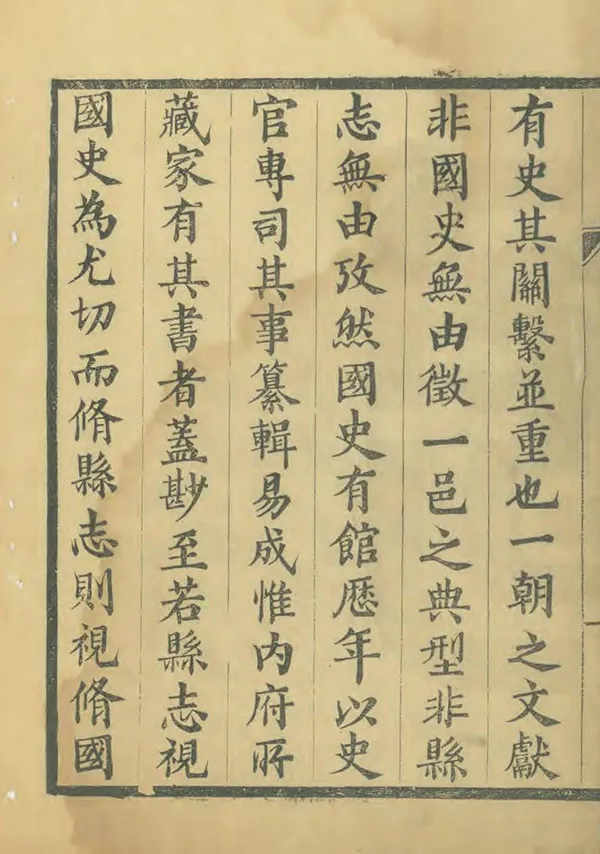 有史其關繫並重也一朝之文獻
非國史無由徵一邑之典型非縣
志無由攷然國史有館歷年以史
官專司其事纂輯易成惟内府所
藏家有其書者蓋尠至若縣志視
國史為尤切而脩縣志則視脩國